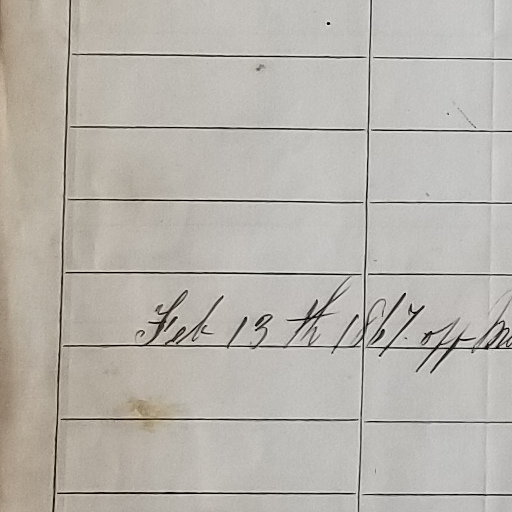 Feb 13 th 1867. off